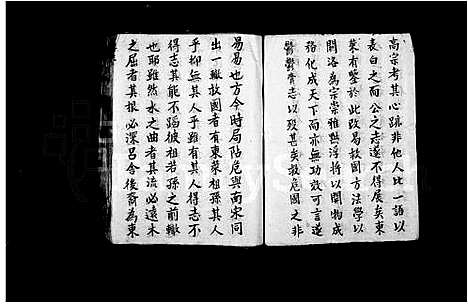 高宗考其心跡非他人比一語以
表白之而公之志遂不得展矣東
萊有鑒於此改易故國方法學以
關洛為宗崇雅黜浮將以開物成
務化成天下而亦無功效可言遂
鬱鬱齎志以歿甚矣救危國之非
易易也方今時局阽危與南宋同
出一轍故國者有東萊祖孫其人
乎抑無其人乎雖有其人得志不
得志其能不蹈彼祖若孫之前轍
也耶雖然水之曲者其流必遠木
之屈者其根必深呂舍後裔為東